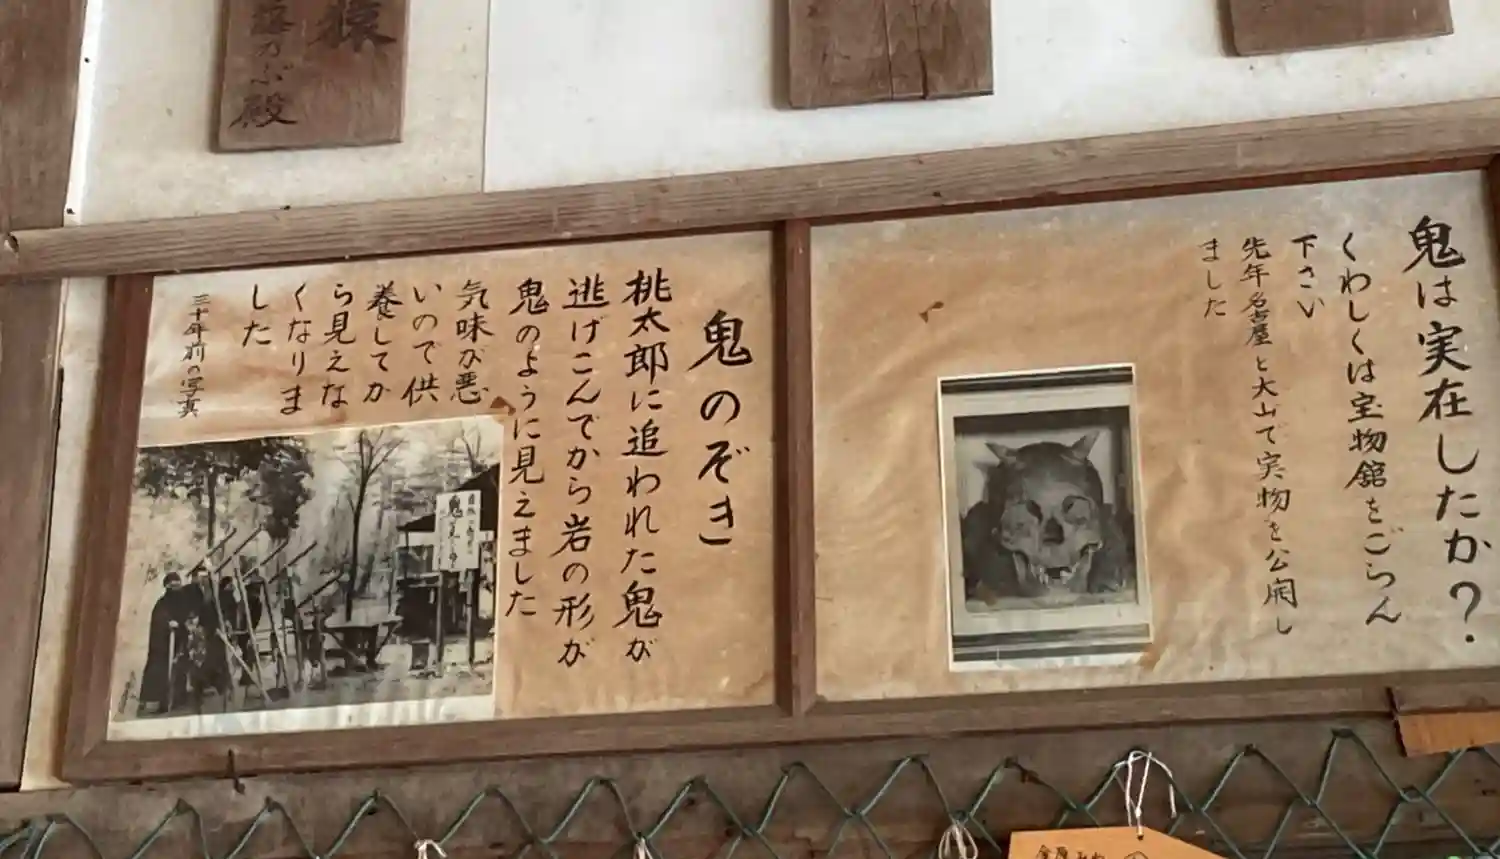 猿
藤のぶ殿
鬼は実在したか?
くわしくは宝物館をごらん
下さい
先年名古屋と犬山で実物を公開し
ました
鬼のぞき
桃太郎に追われた鬼が
逃げこんでから岩の形が
鬼のように見えました
気味が悪
いので供
養してか
ら見えな
くなりま
した
三十年前の写真